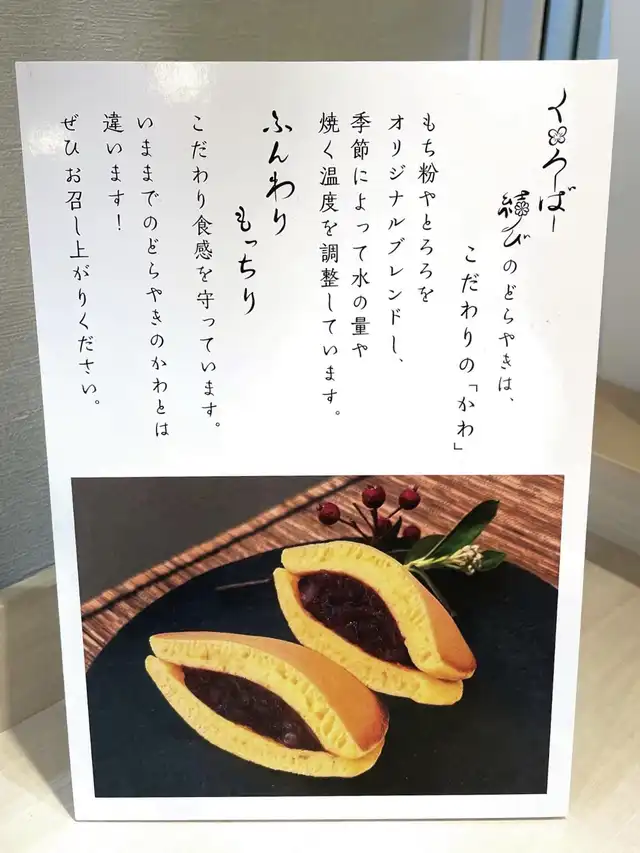 くろーばー
結びのどらやきは、
こだわりの「かわ」
もち粉やとろろを
オリジナルブレンドし、
季節によって水の量や
焼く温度を調整しています。
ふんわり
もっちり
こだわり食感を守っています。
いままでのどらやきのかわとは
違います！
ぜひお召し上がりください。